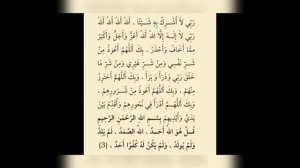 رَبِّي لَا أُشْرِكُ بِهِ شَيْئًا ، اللهُ اللهُ اللهُ اللهُ
رَبِّي لَا إِلَهَ إِلَّا اللهُ اللهُ أَعَزُّ وَأَجَلُّ وَأَكْبَرُ
مِمَّا أَخَافُ وَأَحْذَرُ ، بِكَ اللَّهُمَّ أَعُوذُ مِنْ
شَرِّ نَفْسِي وَمِنْ شَرِّ غَيْرِي وَمِنْ شَرِّ مَا
خَلَقَ رَبِّي وَذَرَأَ وَبَرَأَ ، وَبِكَ اللَّهُمَّ أَحْتَرِزُ
مِنْهُمْ ، وَبِكَ اللَّهُمَّ أَعُوذُ مِنْ شُرُورِهِمْ ،
وَبِكَ اللَّهُمَّ أَدْرَأُ فِي نُحُورِهِمْ وَأُقَدِّمُ بَيْنَ
يَدَيَّ وَأَيْدِيهِمْ بِسْمِ اللهِ الرَّحْمَنِ الرَّحِيمِ
قُلْ هُوَ اللهُ أَحَدٌ ، اللهُ الصَّمَدُ ، لَمْ يَلِدْ
وَلَمْ يُولَدْ ، وَلَمْ يَكُنْ لَهُ كُفُوًا أَحَدٌ ، (3)